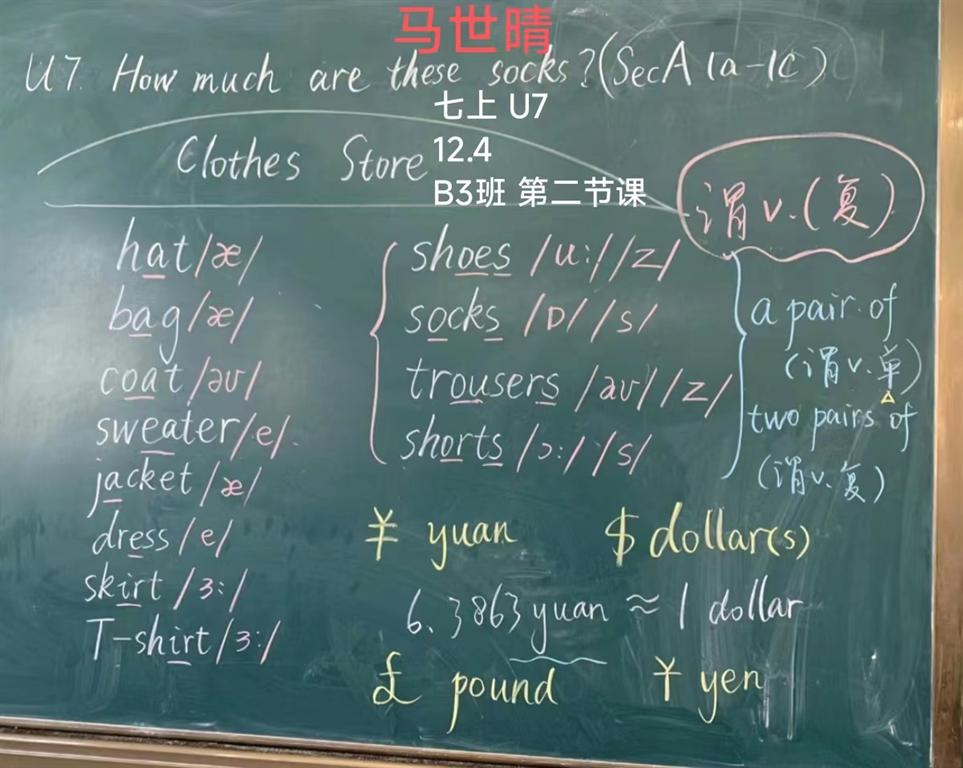 马世晴
U7. How much are these socks? (SecA 1a-1c)
七上 U7
12.4
B3班 第二节课
Clothes Store
谓v.(复)
hat /æ/
bag /æ/
coat /əʊ/
sweater /e/
jacket /æ/
dress /e/
skirt /ɜ:/
T-shirt /ɜ:/
shoes /u:/ /z/
socks /ɒ/ /s/
trousers /aʊ/ /z/
shorts /ɔ:/ /s/
a pair of
(谓v.单)
two pairs of
(谓v.复)
¥ yuan $ dollar(s)
6.3863 yuan ≈ 1 dollar
£ pound ¥ yen